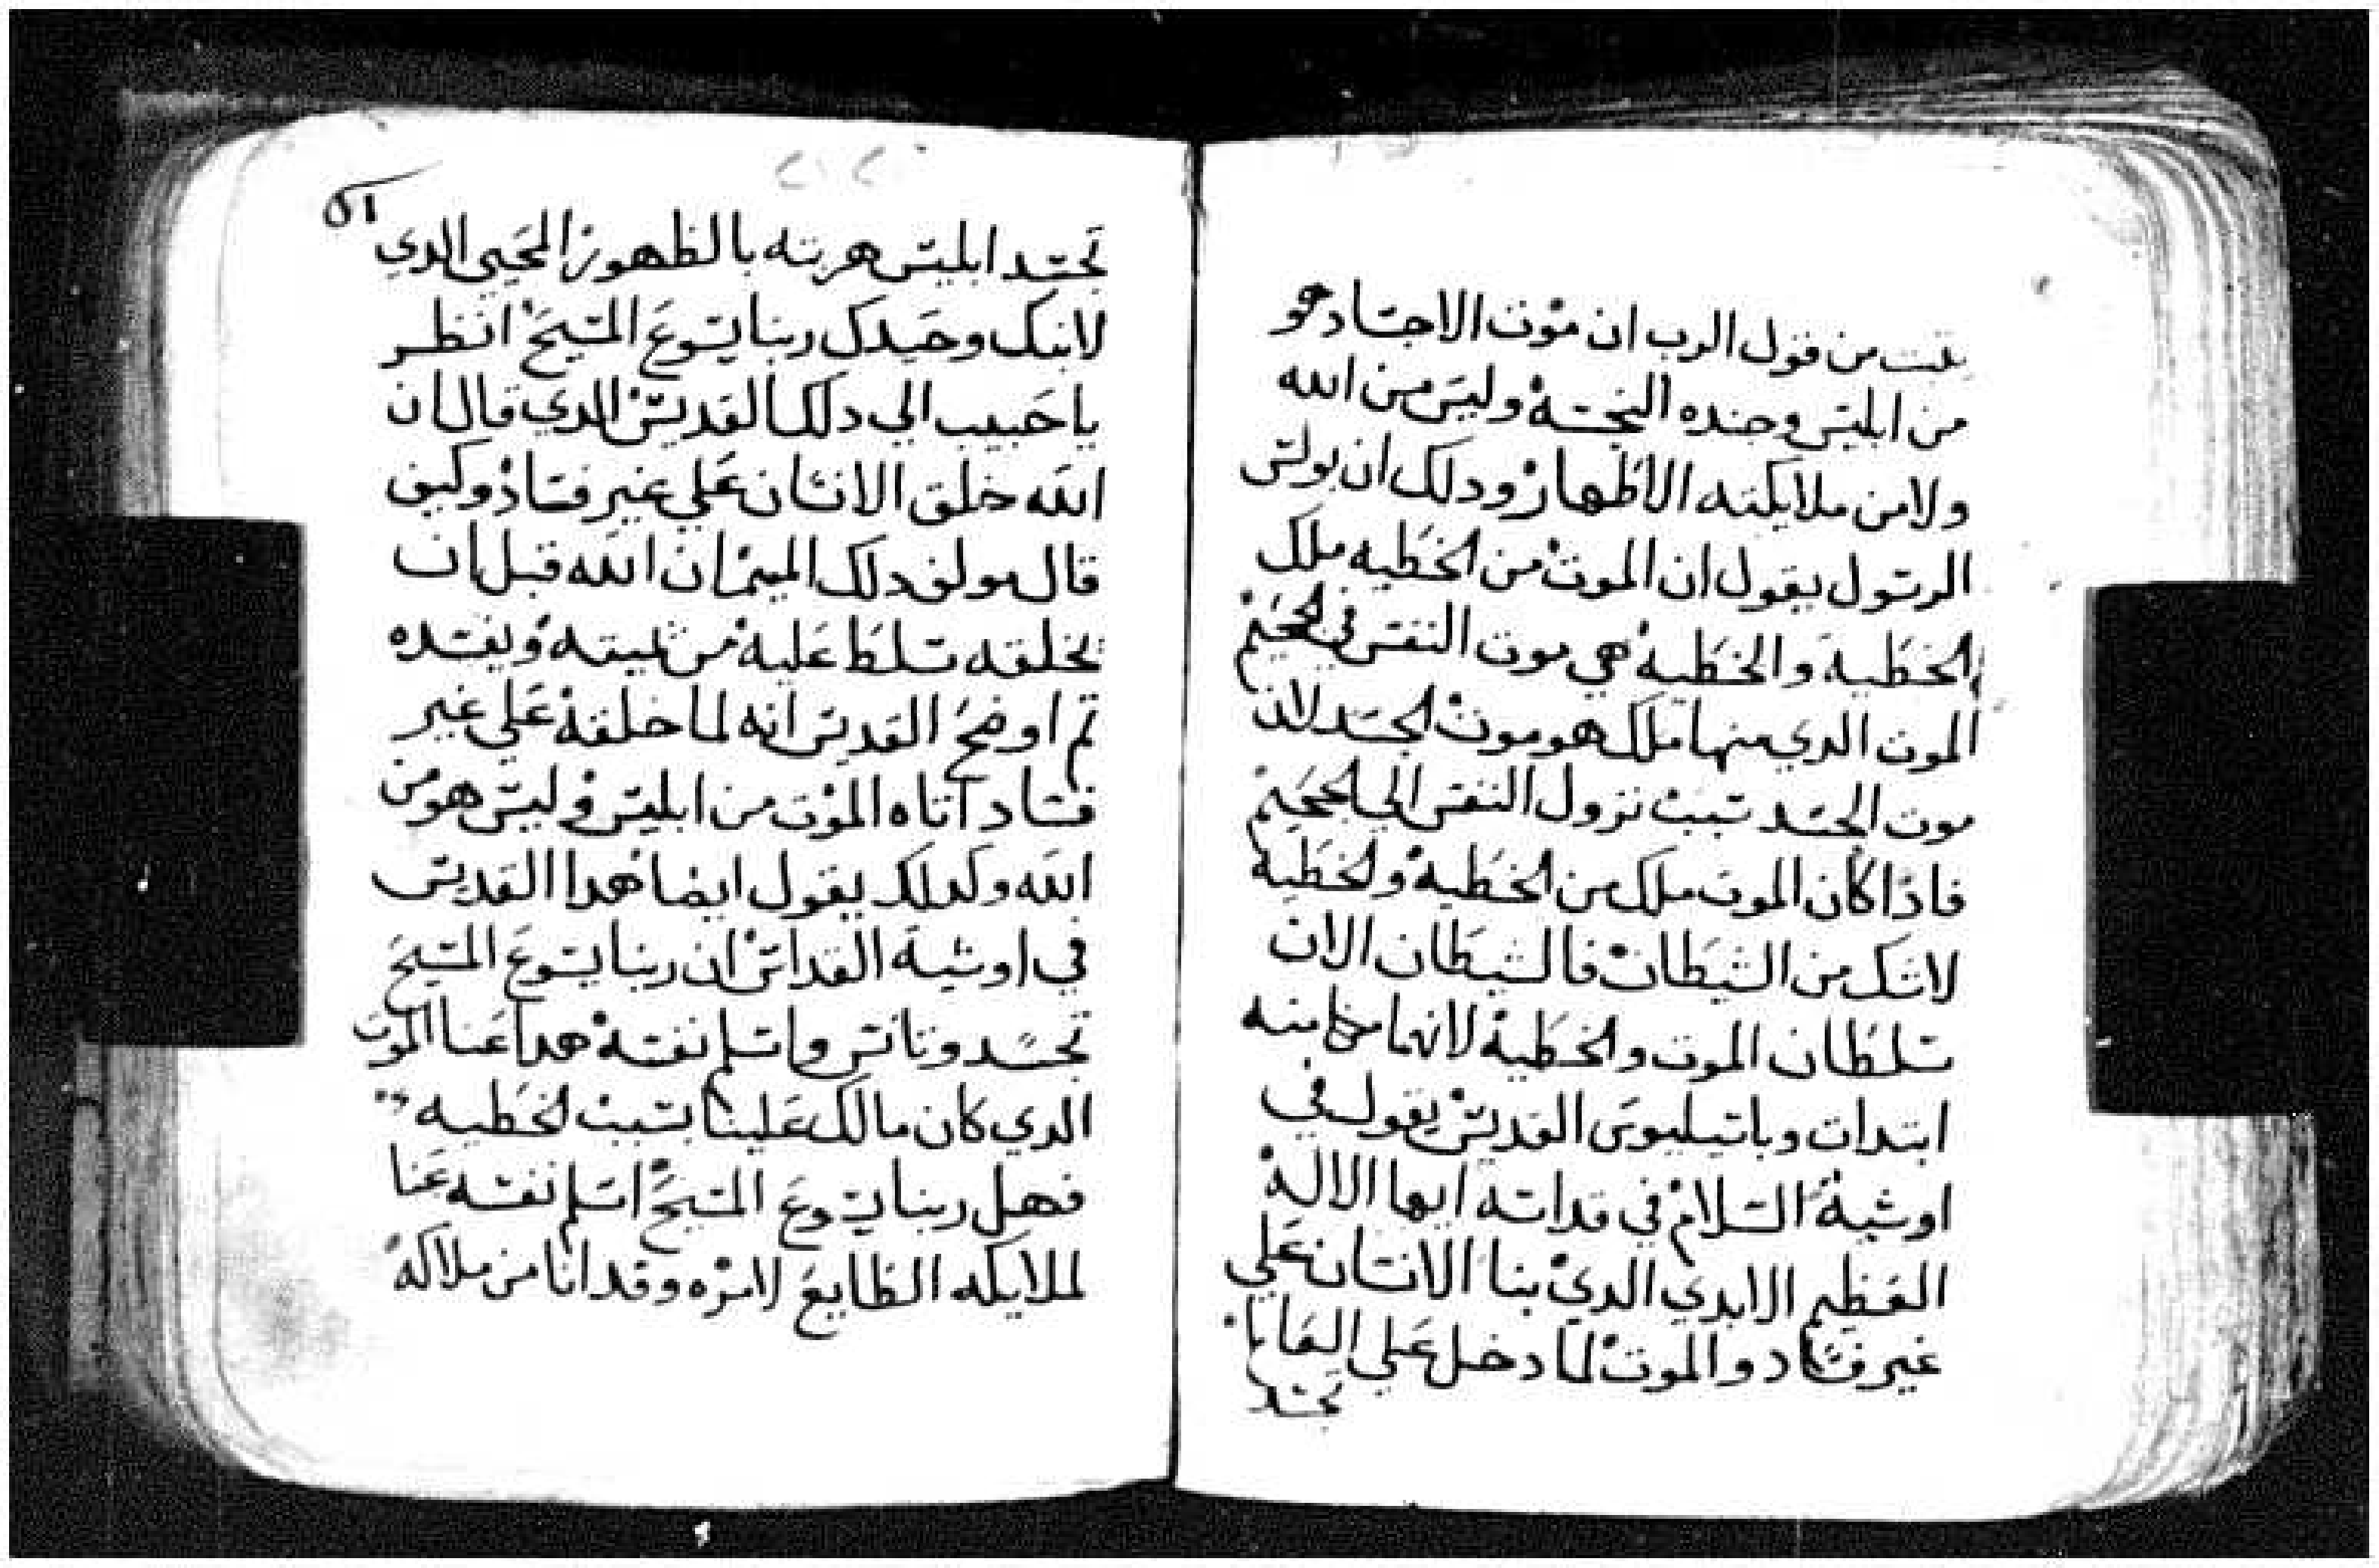 من قول الرب ان موت الاجساد هو
من ابليس وجنده النجسة وليس من الله
ولا من ملايكته الاطهار ودلك ان بولس
الرسول يقول ان الموت من الخطيه ملك
الخطية والخطية هي موت النفس في الجحيم
الموت الدي منها ملك هو موت الجسد لان
موت الجسد سبب نزول النفس الي الجحيم
فاذا كان الموت ملك من الخطية والخطية
لاشك من الشيطان فالشيطان الان
سلطان الموت والخطية لانهما منه
ابتدات وباسيليوس القديس يقول في
اوشية السلام في قداسه ايها الاله
العظيم الابدي الدي بنا الانسان علي
غير فساد والموت لما دخل علي العالم
بحسد
٥١
بحسد ابليس هدمته بالظهور المحيي الدي
لابنك وحيدك ربنا يسوع المسيح انظر
يا حبيب الي دلك القديس الدي قال ان
الله خلق الانسان علي غير فساد وكيف
قال مولف دلك الميمر ان الله قبل ان
يخلقه سلط عليه من يميته ويفسده
تم اوضح القديس انه لما خلقه علي غير
فساد اتاه الموت من ابليس وليس هو من
الله وكدلك يقول ايضا هدا القديس
في اوشية القداس ان ربنا يسوع المسيح
تجسد وتانس واسلم نفسه هدا عنا الموت
الدي كان مالك علينا بسبب الخطيه
فهل ربنا يسوع المسيح اسلم نفسه عنا
لملايكه الطايع لامره وقد اتانا من ملاكه